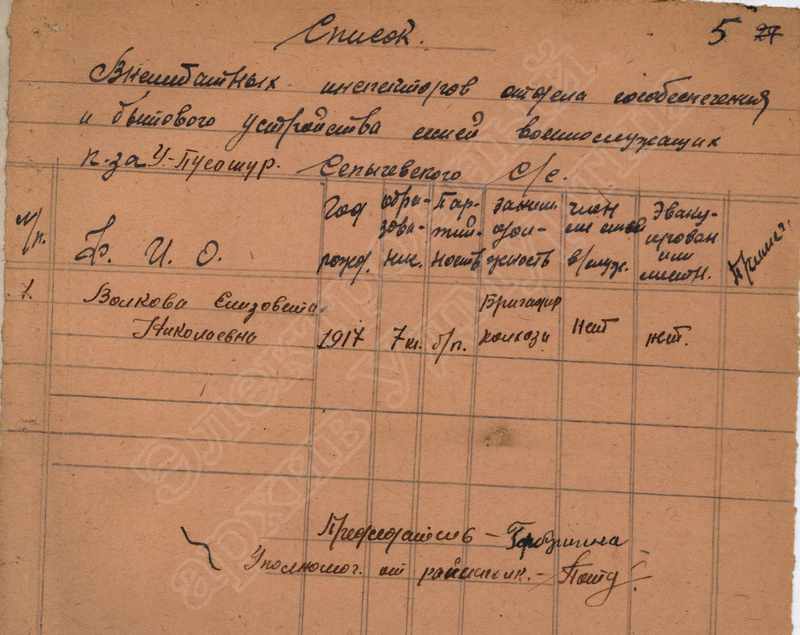 5 27
Список.
Внештатных инспекторов отдела гособеспечения
и бытового устройства семей военнослужащих
к-за У-Пусошур. Сепычевского С/с.
№/п. Ф. И. О. Год рожд. образование. Партийность занимаем должность член семьи в/служ. Эвакуирован или местн. Примеч.
1. Волкова Елизовета Николаевна 1917 7 кл. б/п. Бригадир колхоза нет жит.
Председатель –
Уполномоч. от райисполк. –
Электронный
архив Удмуртии